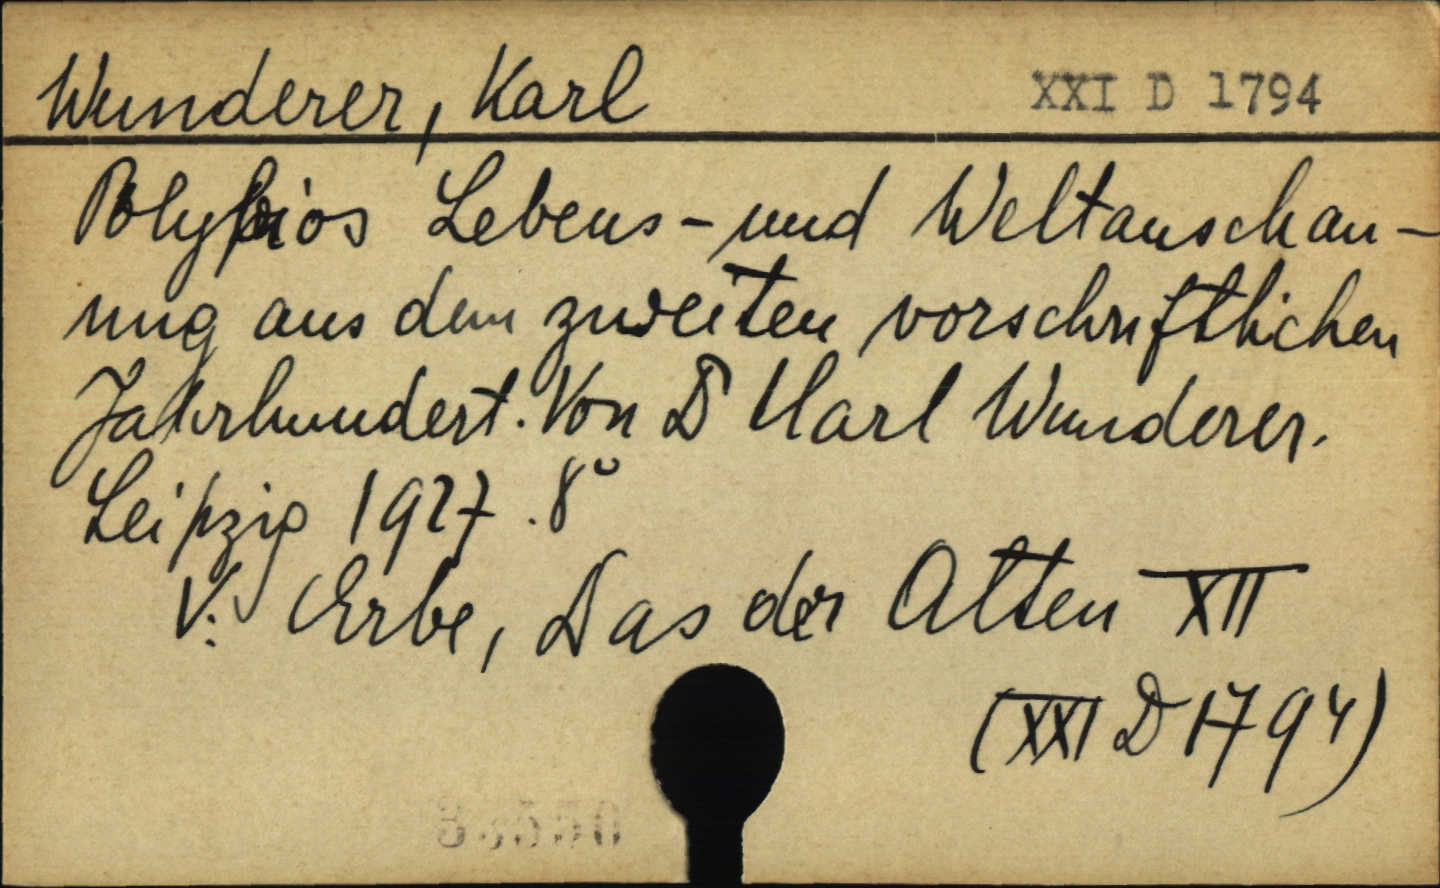 Wunderer, Karl XXI D 1794
Polybios Lebens- und Weltanschau-
ung aus dem zweiten vorschriftlichen
Jahrhundert. Von Dr Karl Wunderer.
Leipzig 1927. 8°
V: Erbe, Das der Alten XII
(XXI D 1794)